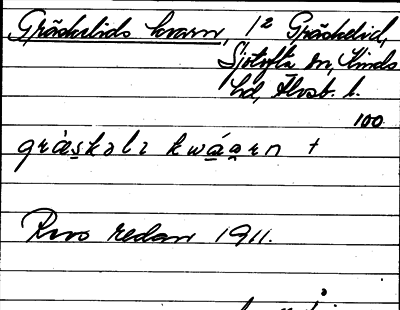 Gräskelids kvarn, 1² Gräskelid,
Sjötofta sn, Kinds
hd, Älvsb. l.
100
gräskəlɪ kwáarn +
Revs redan 1911.